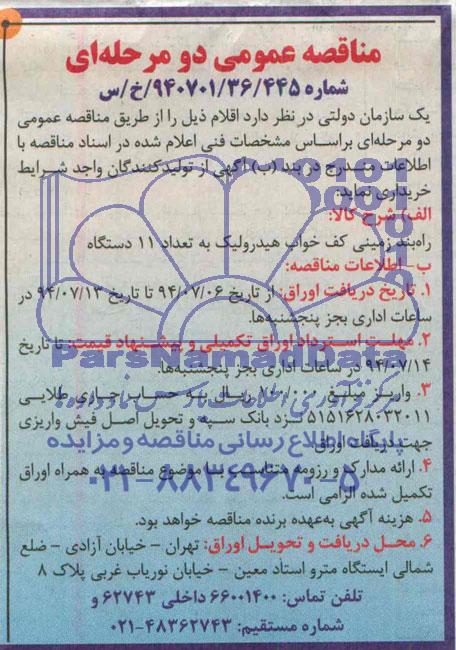 مناقصه عمومی دو مرحله‌ای
شماره ۹۴۰۷۰۱/۳۶/۴۴۵/خ/س
یک سازمان دولتی در نظر دارد اقلام ذیل را از طریق مناقصه عمومی
دو مرحله‌ای براساس مشخصات فنی اعلام شده در اسناد مناقصه با
اطلاعات مندرج در بند (ب) آگهی از تولیدکنندگان واجد شرایط
خریداری نماید:
الف) شرح کالا:
راه‌بند زمینی کف خواب هیدرولیک به تعداد ۱۱ دستگاه
ب- اطلاعات مناقصه:
۱. تاریخ دریافت اوراق: از تاریخ ۹۴/۰۷/۰۶ تا تاریخ ۹۴/۰۷/۱۳ در
ساعات اداری بجز پنجشنبه‌ها.
۲. مهلت استرداد اوراق تکمیلی و پیشنهاد قیمت: تا تاریخ
۹۴/۰۷/۱۴ در ساعات اداری بجز پنجشنبه‌ها.
ParsNamadData
۳. واریز مبلغ ریال به حساب جاری طلایی
۵۱۵۱۶۲۸۰۳۲۰۱۱ نزد بانک سپه و تحویل اصل فیش واریزی
جهت دریافت اوراق
پایگاه اطلاع رسانی مناقصه و مزایده
۴. ارائه مدارک و رزومه متناسب با موضوع مناقصه به همراه اوراق
۰۲۱-۸۸۳۴۹۶۷۰-۵
تکمیل شده الزامی است.
۵. هزینه آگهی به‌عهده برنده مناقصه خواهد بود.
۶. محل دریافت و تحویل اوراق: تهران - خیابان آزادی - ضلع
شمالی ایستگاه مترو استاد معین - خیابان نوریاب غربی پلاک ۸
تلفن تماس: ۶۶۰۰۱۴۰۰ داخلی ۶۲۷۴۳ و
شماره مستقیم: ۴۸۳۶۲۷۴۳-۰۲۱